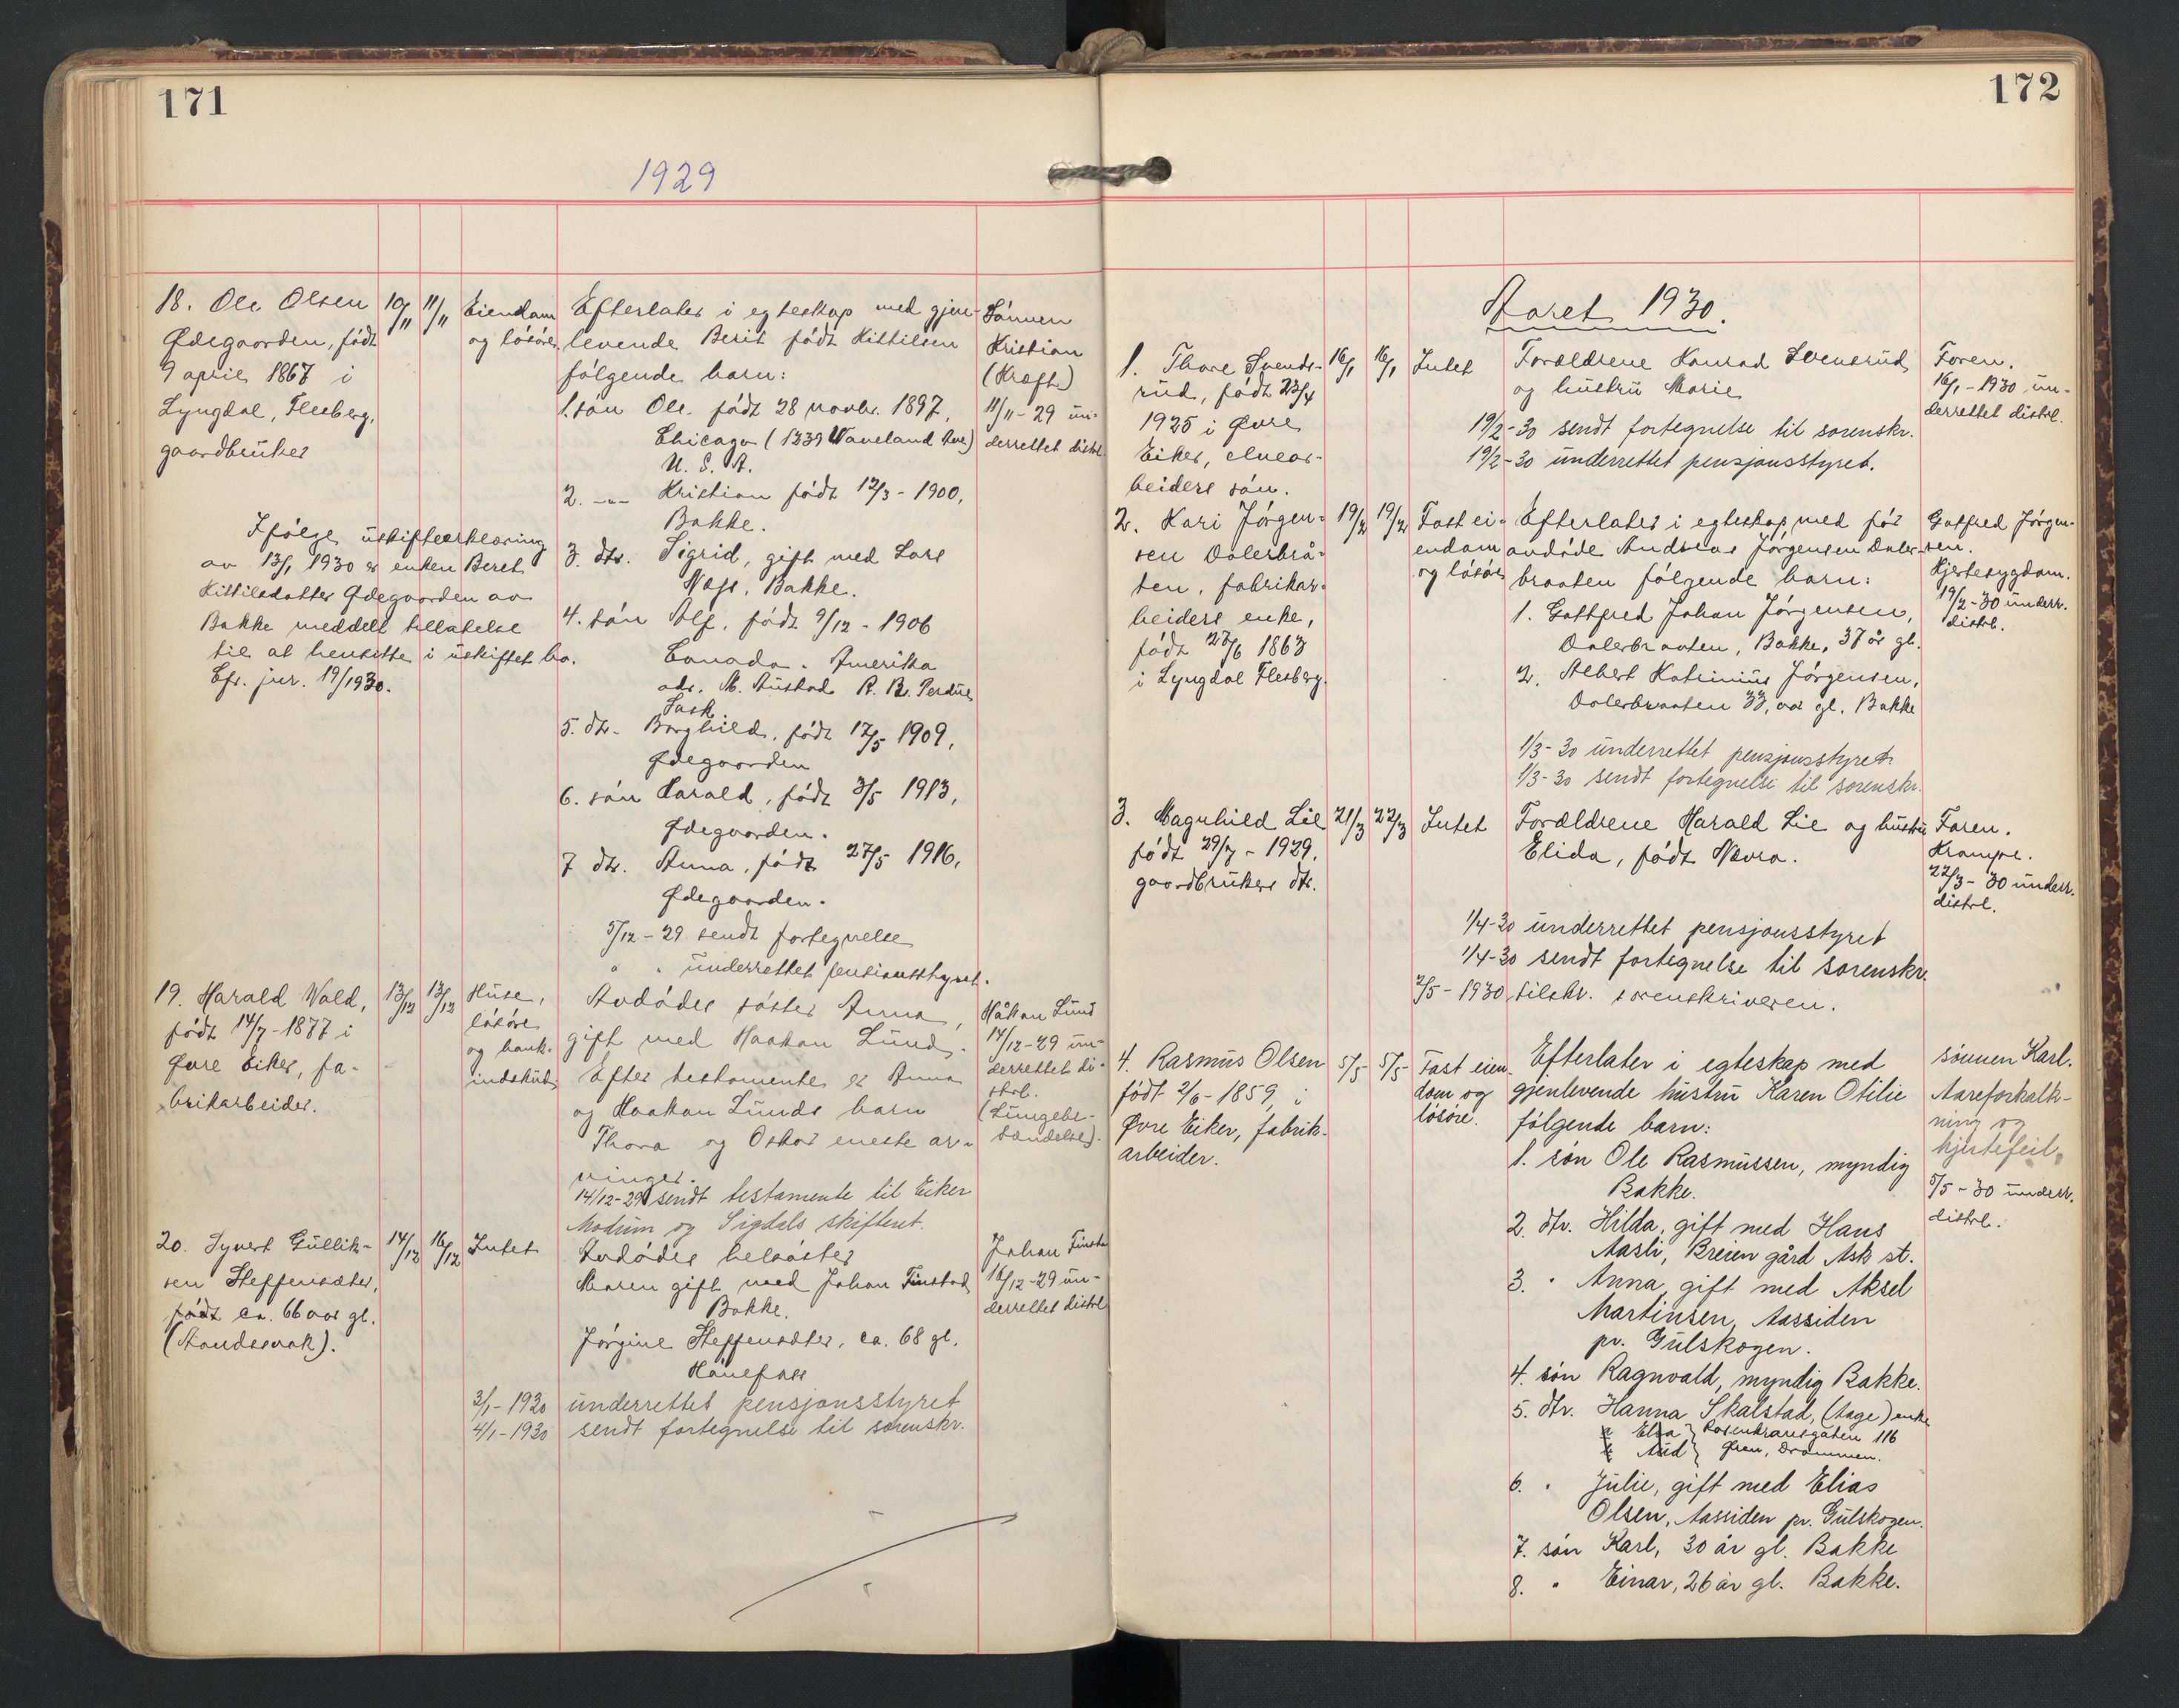 171
1929
18. Ole Olsen
Ødegaarden, født
9 april 1867 i
Lyngdal, Flesberg,
gaardbruker
10/11
11/11
Eiendom
og løsøre
Efterlater i egteskap med gjen-
levende Berit født Kittilsen
følgende barn:
1. søn Ole. født 28 novbr. 1897,
Chicago (1339 Waveland Ave)
U. S. A.
2. -"- Kristian født 12/3 - 1900,
Bakke.
3. dtr. Sigrid, gift med Lars
Hage, Bakke.
4. søn Alf. født 9/12 - 1906
Canada. Amerika
adr. M. Austad R. R. Perdue
Sask.
5. dtr. Borghild, født 17/5 1909,
Ødegaarden
6. søn Harald, født 3/5 1913,
Ødegaarden.
7 dtr. Anna, født 27/5 1916,
Ødegaarden.
5/12 - 29 sendt fortegnelse
" " underrettet pensionsstyret.
Sønnen
Kristian
(Kræft)
11/11 - 29 un-
derrettet distrl.
Ifølge uskifteerklæring
av 13/1 1930 er enken Beret
Kittilsdatter Ødegaarden av
Bakke meddelt tillatelse
til at hensitte i uskiftet bo.
Efr. jnr. 19/1930.
19. Harald Wald,
født 14/7 - 1877 i
Øvre Eiker, fa-
brikarbeider.
13/12
13/12
Huse,
løsøre
og bank-
indskud
Avdødes søster Anna,
gift med Haakon Lund.
Efter testamente er Anna
og Haakon Lunds barn
Thora og Oskar eneste ar-
vinger.
14/12-29 sendt testamente til Eiker
Modum og Sigdals skifteret.
Håkon Lund
14/12-29 un-
derrettet di-
strl.
(Lungebe-
tændelse).
20. Syvert Gullik-
sen Steffensæter,
født ca. 66 aar gl.
(Aandssvak).
14/12
16/12
Intet
Avdødes helsøster
Maren gift med Johan Finstad
Bakke.
Jørgine Steffensæter, ca. 68 gl.
Hønefoss
Johan Finsta
16/12-29 un-
derrettet distrl
3/1 - 1930 underrettet pensjonsstyret
4/1 - 1930 sendt fortegnelse til sorenskr.
172
Aaret 1930.
1. Thore Svends-
rud, født 23/4
1925 i Øvre
Eiker, elvear-
beiders søn.
16/1
16/1
Intet
Forældrene Konrad Svensrud
og hustru Marie
19/2-30 sendt fortegnelse til sorenskr.
19/2-30 underrettet pensjonsstyret.
Faren.
16/1-1930 un-
derrettet distrl.
2. Kari Jørgen-
sen Dalerbrå-
ten, fabrikar-
beiders enke,
født 27/6 1863
i Lyngdal Flesberg.
19/2
19/2
Fast ei-
endom
og løsøre
Efterlater i egteskap med før
avdøde Andreas Jørgensen Daler-
braaten følgende barn:
1. Gottfred Johan Jørgensen,
Dalerbraaten, Bakke, 37 år gl.
2. Albert Katrinius Jørgensen,
Dalerbraaten 33, aar gl. Bakke
1/3-30 underrettet pensjonsstyret
1/3-30 sendt fortegnelse til sorenskr.
Gotfred Jørgen-
sen.
Hjertesygdom.
19/2-30 underr.
distrl.
3. Magnhild Lie
født 29/7 - 1929,
gaardbrukers dtr.
21/3
22/3
Intet
Forældrene Harald Lie og hustru
Elida, født Nævra.
1/4-30 underrettet pensjonsstyret
1/4-30 sendt fortegnelse til sorenskr.
2/5 - 1930 tilskr. sorenskriveren.
Faren.
Krampe.
22/3 - 30 underr.
distrl.
4. Rasmus Olsen
født 2/6 - 1859, i
Øvre Eiker, fabrik-
arbeider.
5/5
5/5
Fast eien-
dom og
løsøre.
Efterlater i egteskap med
gjenlevende hustru Karen Otilie
følgende barn:
1. søn Ole Rasmussen, myndig
Bakke.
2. dtr. Hilda, gift med Hans
Aasli, Breien gård Ask st.
3. " Anna gift med Aksel
Martinsen, Aassiden
pr. Gulskogen.
4. søn Ragnvald, myndig Bakke.
5. dtr. Hanna Skalstad, (Aage) enke
Elsa } Rosenkransgaten 116
Aud } Øren, Drammen.
6. " Julie, gift med Elias
Olsen, Aassiden pr. Gulskogen.
7. søn Karl, 30 år gl. Bakke
8. " Einar, 26 år gl. Bakke.
sønnen Karl.
Aareforkalk-
ning og
hjertefeil.
5/5 - 30 underr.
distrl.